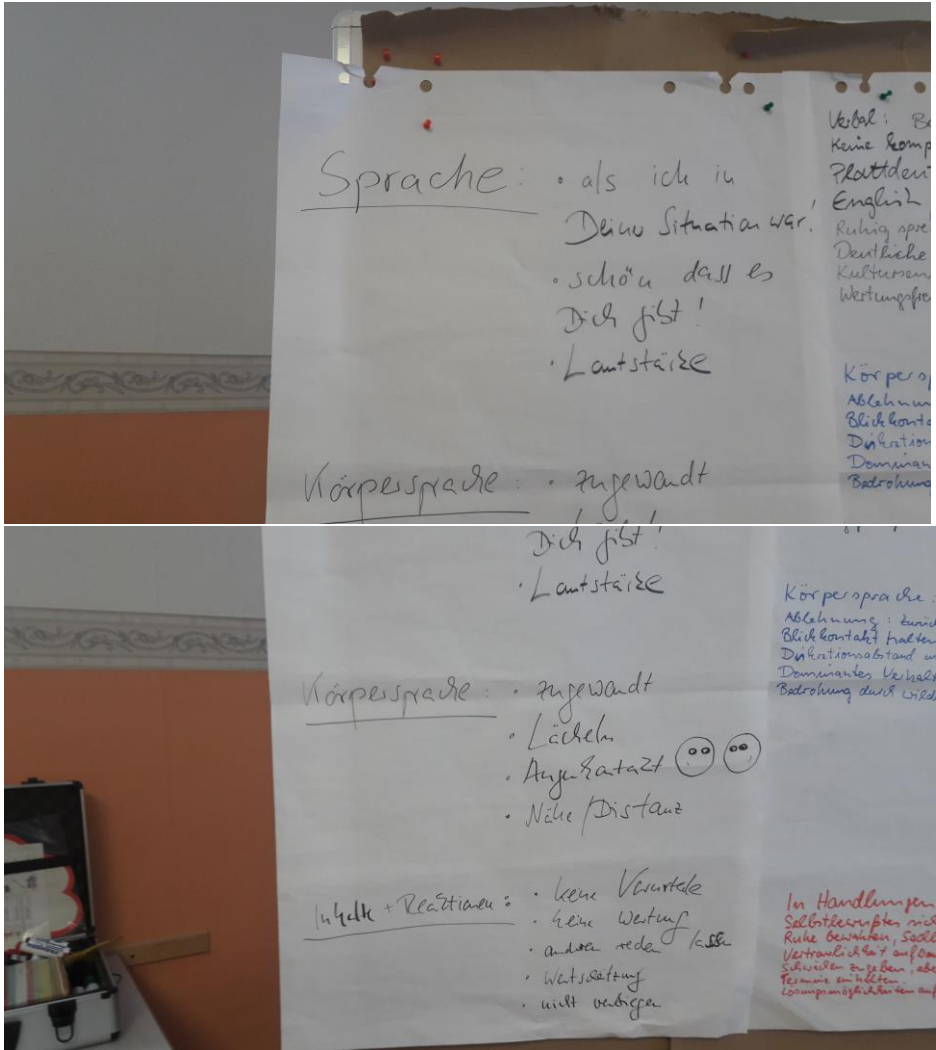 Sprache: • als ich in
Deiner Situation war!
• schön dass es
Dich gibt!
• Lautstärke
Körpersprache: • zugewandt
Verbal: Be
Keine komp
Plattdeut
English
Ruhig spre
Deutliche
Kultursen
Wertungsfre
Körpersp
Ablehnun
Blickkonta
Diskretion
Dominan
Bedrohung
Dich gibt!
• Lautstärke
Körpersprache: • zugewandt
• Lächeln
• Augenkontakt
• Nähe/Distanz
Inhalte + Reaktionen: • keine Vorurteile
• keine Wertung
• anderen reden lassen
• Wertschätzung
• nicht verbiegen
Körpersprache:
Ablehnung: zurüc
Blickkontakt halten
Diskretionsabstand
Dominantes Verhalt
Bedrohung durch wilde
In Handlungen
Selbstbewußtes
Ruhe bewahren, Sachl
Vertraulichkeit aufbau
Schwächen zugeben, abe
Termine einhalten.
Lösungsmöglichkeiten auf